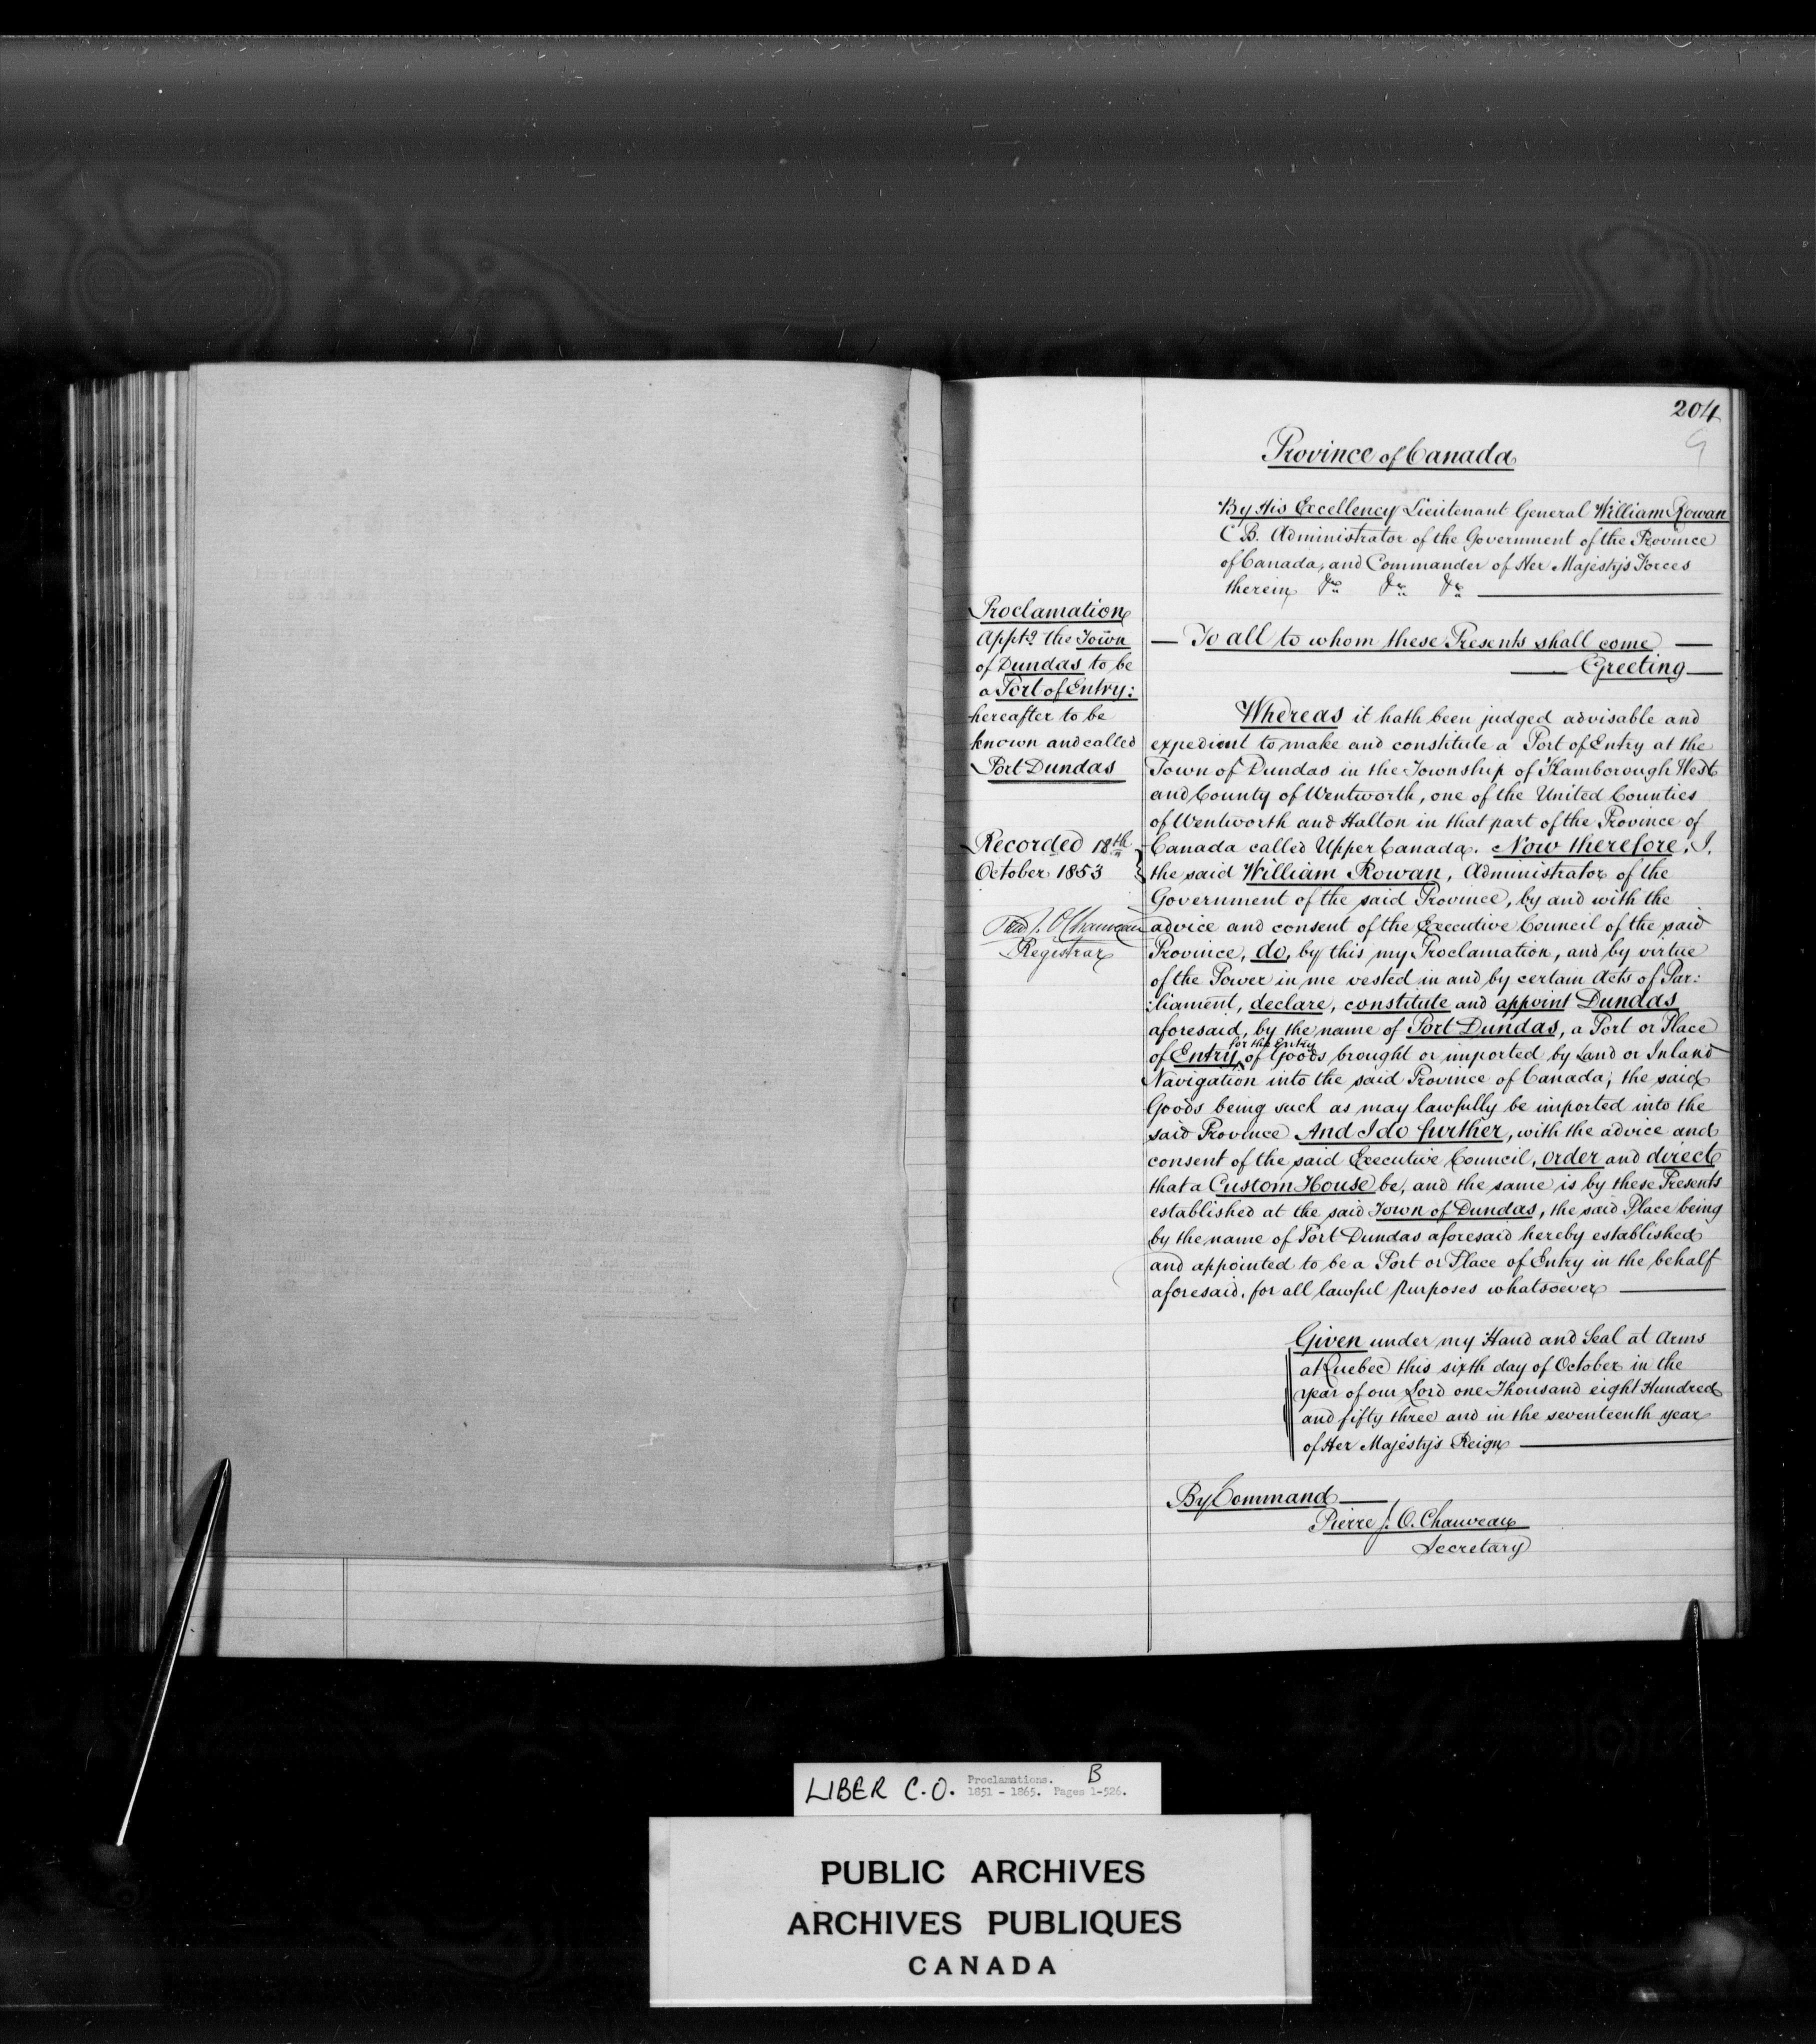 204
Province of Canada
By His Excellency Lieutenant General William Rowan
C.B. Administrator of the Government of the Province
of Canada, and Commander of Her Majesty's Forces
therein &c &c &c
To all to whom these Presents shall come
Greeting
Proclamation
Appt.g the Town
of Dundas to be
a Port of Entry:
hereafter to be
known and called
Port Dundas
Recorded 18th
October 1853
Pierre J. O. Chauveau
Registrar
Whereas it hath been judged advisable and
expedient to make and constitute a Port of Entry at the
Town of Dundas in the Township of Flamborough West
and County of Wentworth, one of the United Counties
of Wentworth and Halton in that part of the Province of
Canada called Upper Canada. Now therefore, I,
the said William Rowan, Administrator of the
Government of the said Province, by and with the
advice and consent of the Executive Council of the said
Province, do, by this my Proclamation, and by virtue
of the Power in me vested in and by certain Acts of Par:
:liament, declare, constitute and appoint Dundas
aforesaid, by the name of Port Dundas, a Port or Place
of Entry for the Entry of Goods brought or imported by Land or Inland
Navigation into the said Province of Canada; the said
Goods being such as may lawfully be imported into the
said Province And I do further, with the advice and
consent of the said Executive Council, order and direct
that a Custom House be, and the same is by these Presents
established at the said Town of Dundas, the said Place being
by the name of Port Dundas aforesaid hereby established
and appointed to be a Port or Place of Entry in the behalf
aforesaid, for all lawful purposes whatsoever
Given under my Hand and Seal at Arms
at Quebec this sixth day of October in the
year of our Lord one Thousand eight Hundred
and fifty three and in the seventeenth year
of Her Majesty's Reign
By Command
Pierre J. O. Chauveau
Secretary
LIBER C.O. Proclamations. B
1851 - 1865. Pages 1-526.
PUBLIC ARCHIVES
ARCHIVES PUBLIQUES
CANADA